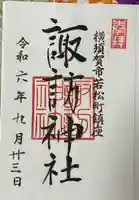 奉拝
横須賀市若松町鎮座
諏訪神社
令和六年九月廿三日